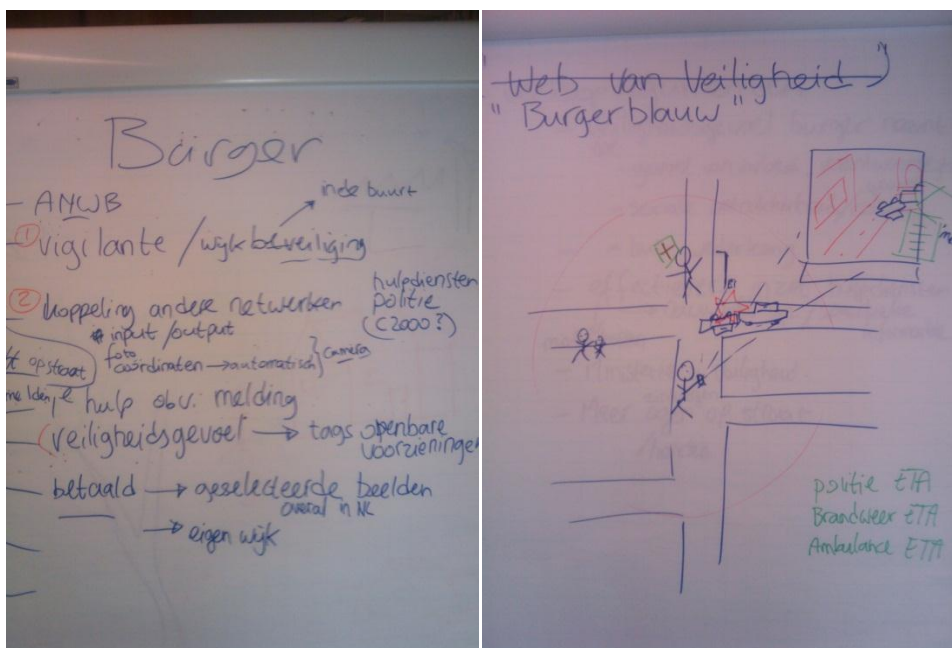 Burger
- ANWB
in de buurt
① vigilante / wijkbeveiliging
② koppeling andere netwerken
hulpdiensten
politie
(C2000?)
input/output
foto
coördinaten → automatisch } camera
op straat
melden,
hulp obv. melding
veiligheidsgevoel → tags openbare
voorzieningen
betaald → geselecteerde beelden
overal in NL
→ eigen wijk
"Web van Veiligheid"
"Burgerblauw"
politie ETA
Brandweer ETA
Ambulance ETA